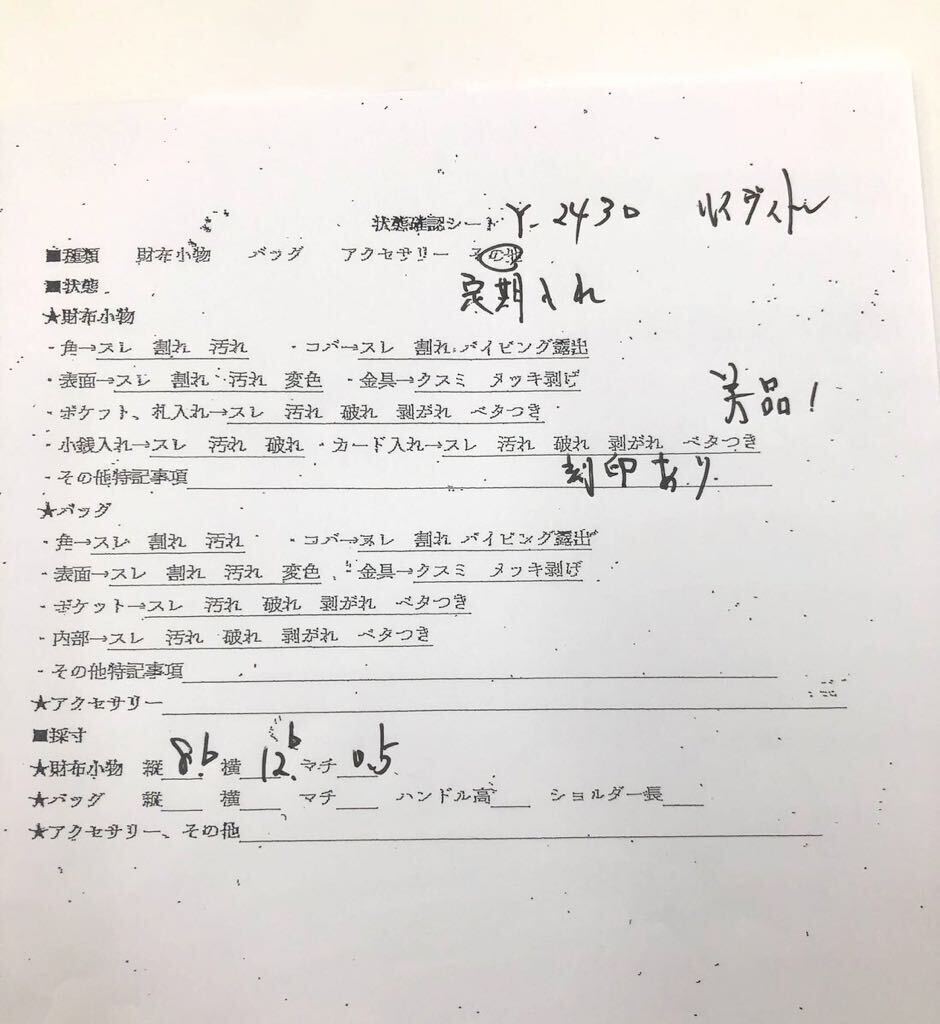 状態確認シート Y-2430 ルイヴィトン
■種類 財布小物 バッグ アクセサリー その他
■状態 定期入れ
★財布小物
・角→スレ 割れ 汚れ ・コバ→スレ 割れ パイピング露出
・表面→スレ 割れ 汚れ 変色 ・金具→クスミ メッキ剥げ
美品!
・ポケット、札入れ→スレ 汚れ 破れ 剥がれ ベタつき
・小銭入れ→スレ 汚れ 破れ ・カード入れ→スレ 汚れ 破れ 剥がれ ベタつき
・その他特記事項 刻印あり
★バッグ
・角→スレ 割れ 汚れ ・コバ→スレ 割れ パイピング露出
・表面→スレ 割れ 汚れ 変色 ・金具→クスミ メッキ剥げ
・ポケット→スレ 汚れ 破れ 剥がれ ベタつき
・内部→スレ 汚れ 破れ 剥がれ ベタつき
・その他特記事項
★アクセサリー
■採寸
★財布小物 縦 8. 横 12. マチ 0.5
★バッグ 縦 横 マチ ハンドル高 ショルダー長
★アクセサリー、その他